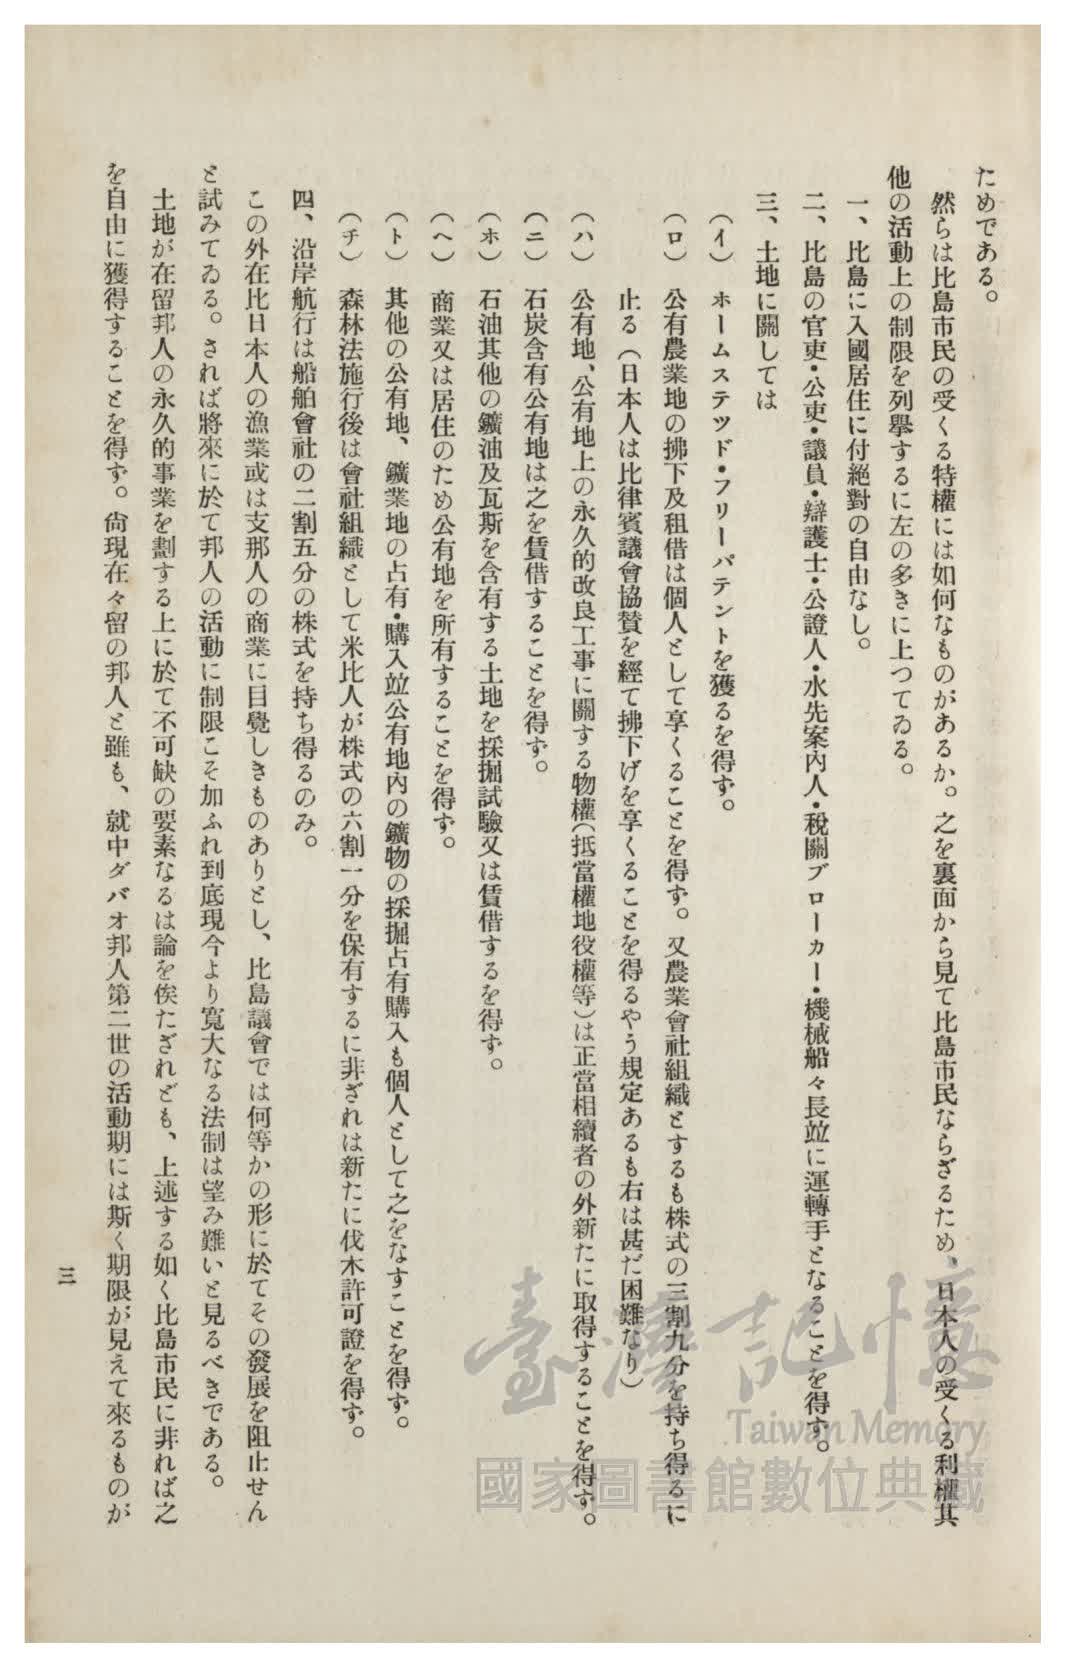 ためである。
然らは比島市民の受くる特權には如何なものがあるか。之を裏面から見て比島市民ならざるため、日本人の受くる利權其
他の活動上の制限を列擧するに左の多きに上つてゐる。
一、比島に入國居住に付絕對の自由なし。
二、比島の官吏・公吏・議員・辯護士・公證人・水先案內人・稅關ブローカー・機械船々長竝に運轉手となることを得ず。
三、土地に關しては
（イ）　ホームステツド・フリーパテントを獲るを得ず。
（ロ）　公有農業地の拂下及租借は個人として享くることを得ず。又農業會社組織とするも株式の三割九分を持ち得るに
止る（日本人は比律賓議會協贊を經て拂下げを享くることを得るやう規定あるも右は甚だ困難なり）
（ハ）　公有地、公有地上の永久的改良工事に關する物權（抵當權地役權等）は正當相續者の外新たに取得することを得ず。
（ニ）　石炭含有公有地は之を賃借することを得ず。
（ホ）　石油其他の鑛油及瓦斯を含有する土地を採掘試驗又は賃借するを得ず。
（ヘ）　商業又は居住のため公有地を所有することを得ず。
（ト）　其他の公有地、鑛業地の占有・購入竝公有地內の鑛物の採掘占有購入も個人として之をなすことを得ず。
（チ）　森林法施行後は會社組織として米比人が株式の六割一分を保有するに非ざれは新たに伐木許可證を得ず。
四、沿岸航行は船舶會社の二割五分の株式を持ち得るのみ。
この外在比日本人の漁業或は支那人の商業に目覺しきものありとし、比島議會では何等かの形に於てその發展を阻止せん
と試みてゐる。されば將來に於て邦人の活動に制限こそ加ふれ到底現今より寬大なる法制は望み難いと見るべきである。
土地が在留邦人の永久的事業を劃する上に於て不可缺の要素なるは論を俟たざれども、上述する如く比島市民に非れば之
を自由に獲得することを得ず。尙現在々留の邦人と雖も、就中ダバオ邦人第二世の活動期には斯く期限が見えて來るものが
三
臺灣記憶
Taiwan Memory
國家圖書館數位典藏